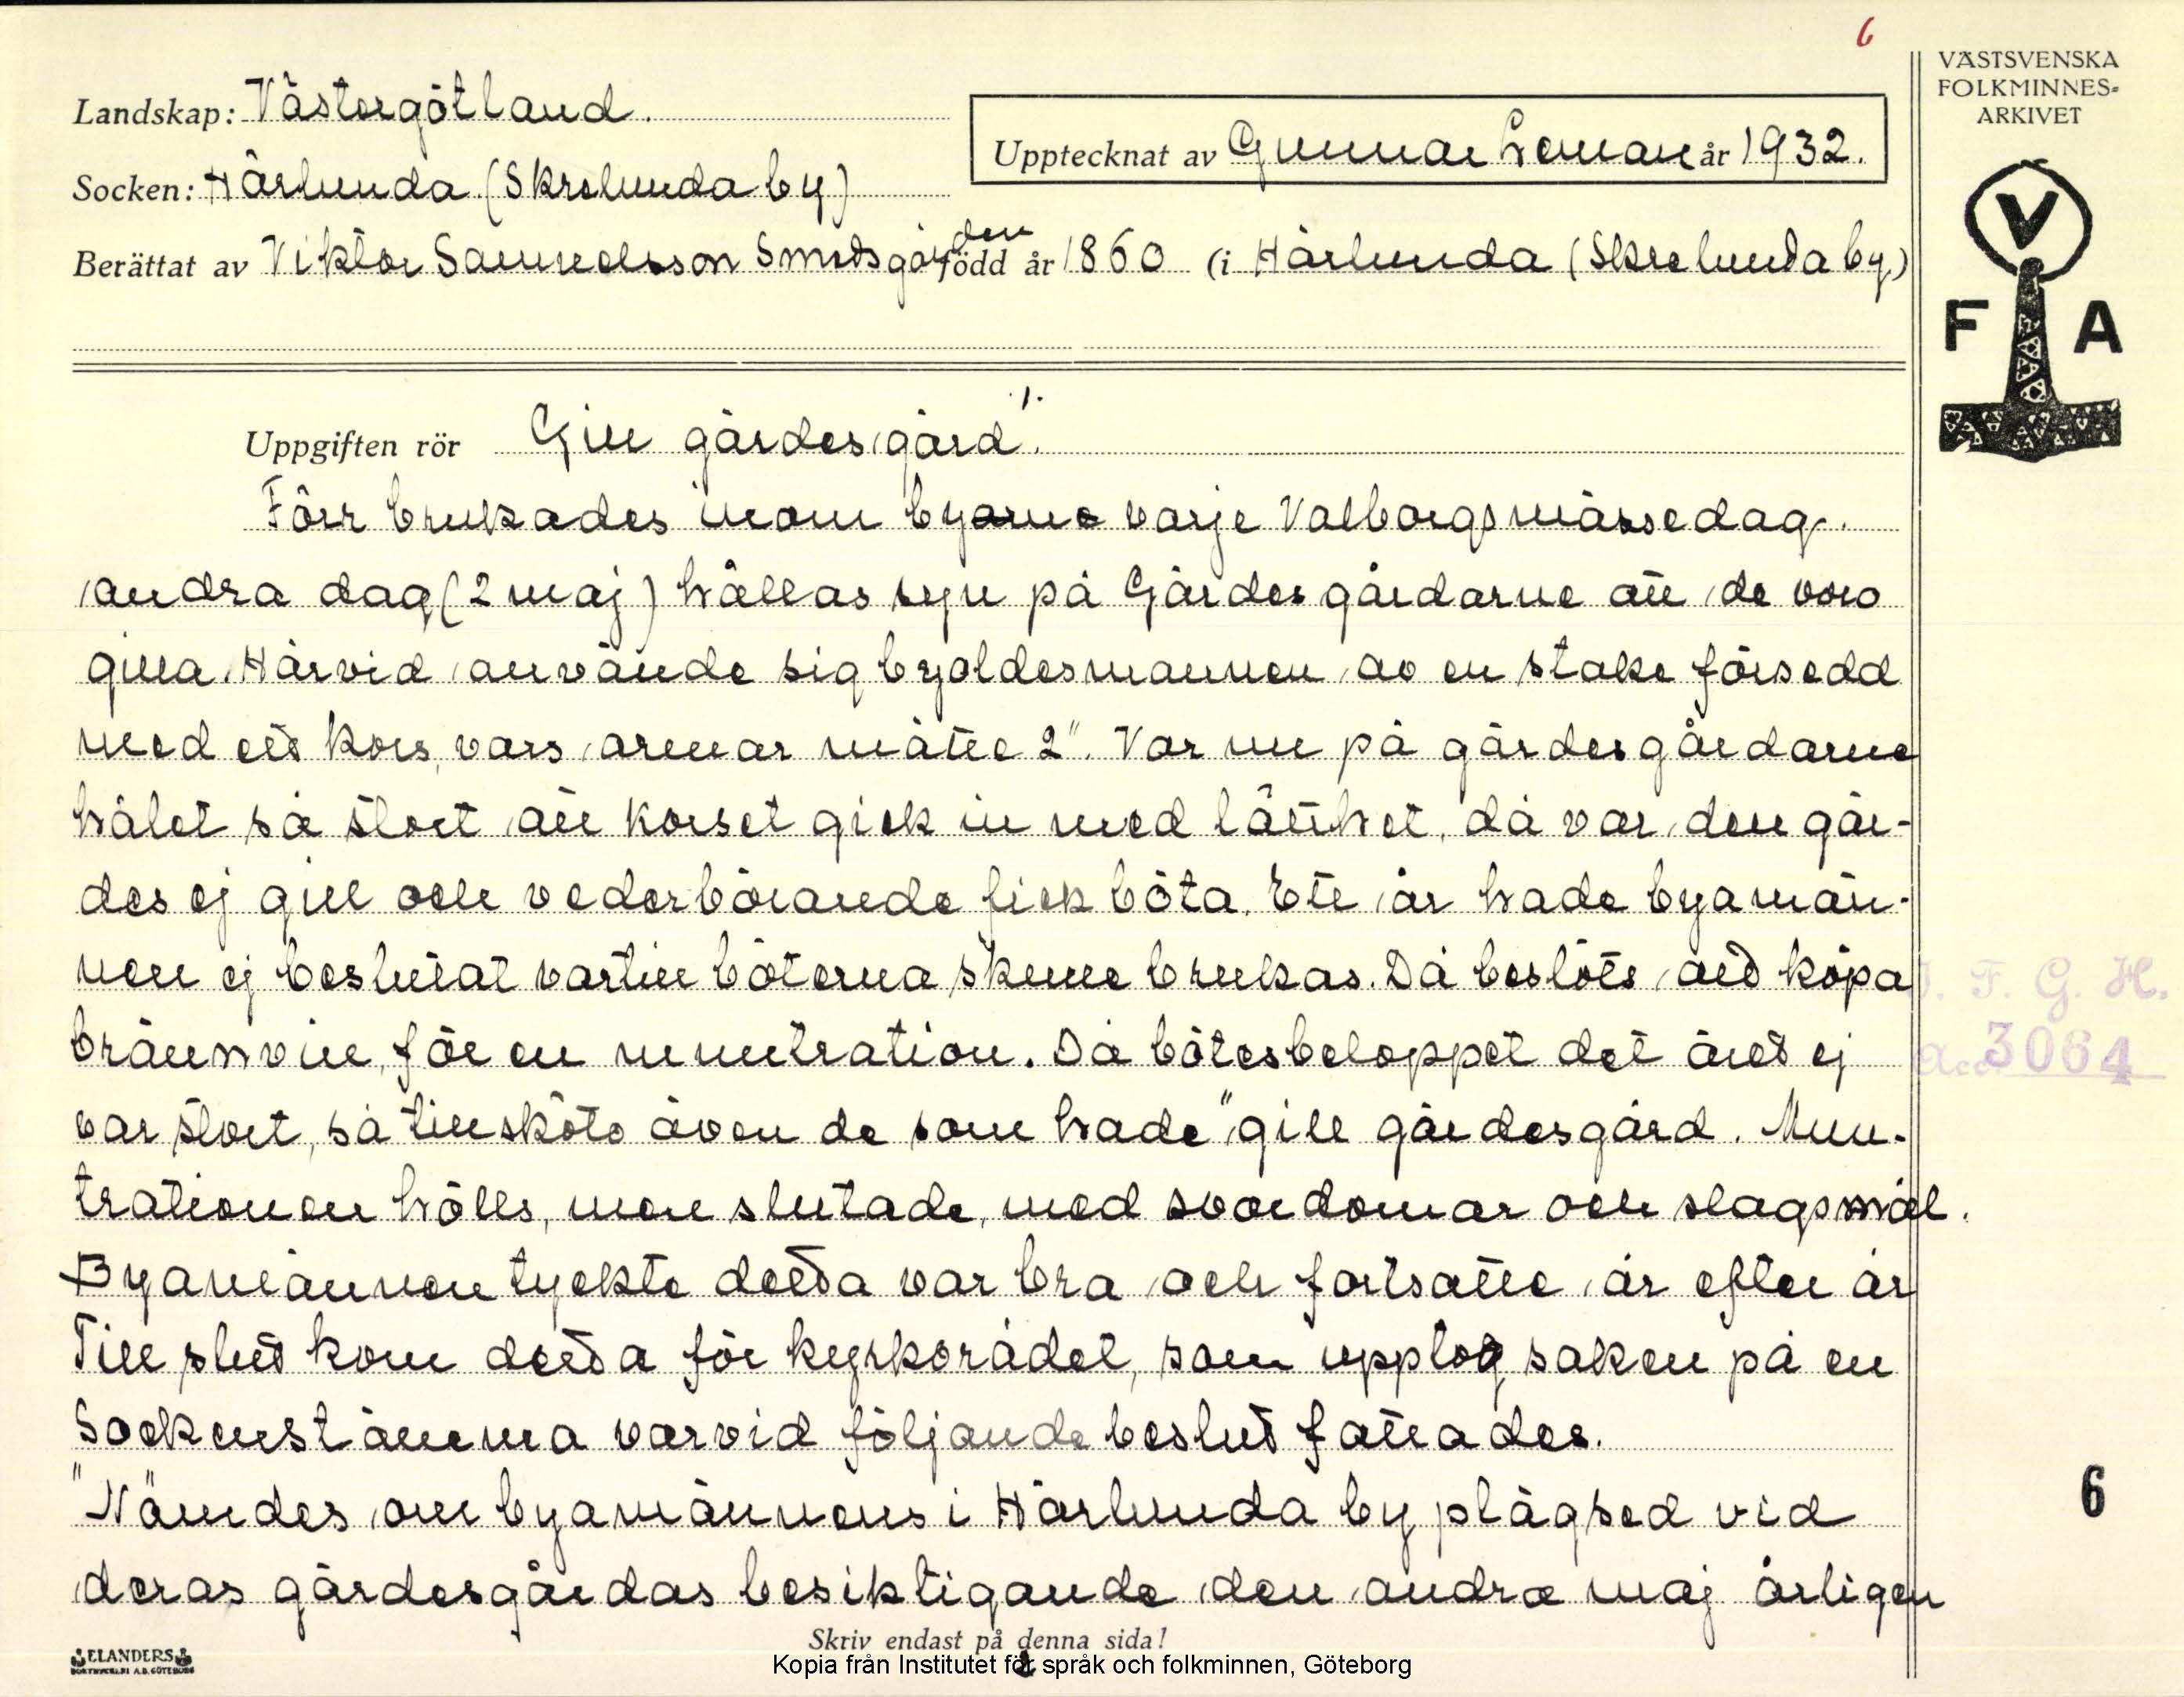 6
VÄSTSVENSKA
FOLKMINNES-
ARKIVET
Landskap: Västergötland.
Upptecknat av Gunnar Loman år 1932.
Socken: Härlunda (Skrelunda by)
Berättat av Viktor Samuelsson Smedsgården född år 1860 (i Härlunda (Skrelunda by)
V
F A
Uppgiften rör Gill gärdesgård".
Förr brukades inom byarne varje Valborgsmässedag
andra dag (2 maj) hållas syn på Gärdesgårdarne att de voro
gilla. Härvid använde sig byoldesmannen av en stake försedd
med ett kors, vars armar mätte 2". Var nu på gärdesgårdarne
hålet så stort att korset gick in med lätthet, då var den gär-
des ej gill och vederbörande fick böta. Ett år hade byamän-
nen ej beslutat vartill böterna skulle brukas. Då beslöts att köpa
brännvin, för en muntration. Då bötesbeloppet det året ej
var stort, så tillsköto även de som hade "gill gärdesgård. Mun-
trationen hölls, men slutade, med svordomar och slagsmål.
Byamännen tyckte detta var bra och fortsatte år efter år
Till slut kom detta för kyrkorådet, som upptog saken på en
Sockenstämma varvid följande beslut fattades.
"Nämdes om byamännens i Härlunda by plägsed vid
deras gärdesgårdas besiktigande den andra maj årligen
I. F. G. H.
Acc. 3064
6
ELANDERS
BOKTRYCKERI A.B. GÖTEBORG
Skriv endast på denna sida!
Kopia från Institutet för språk och folkminnen, Göteborg